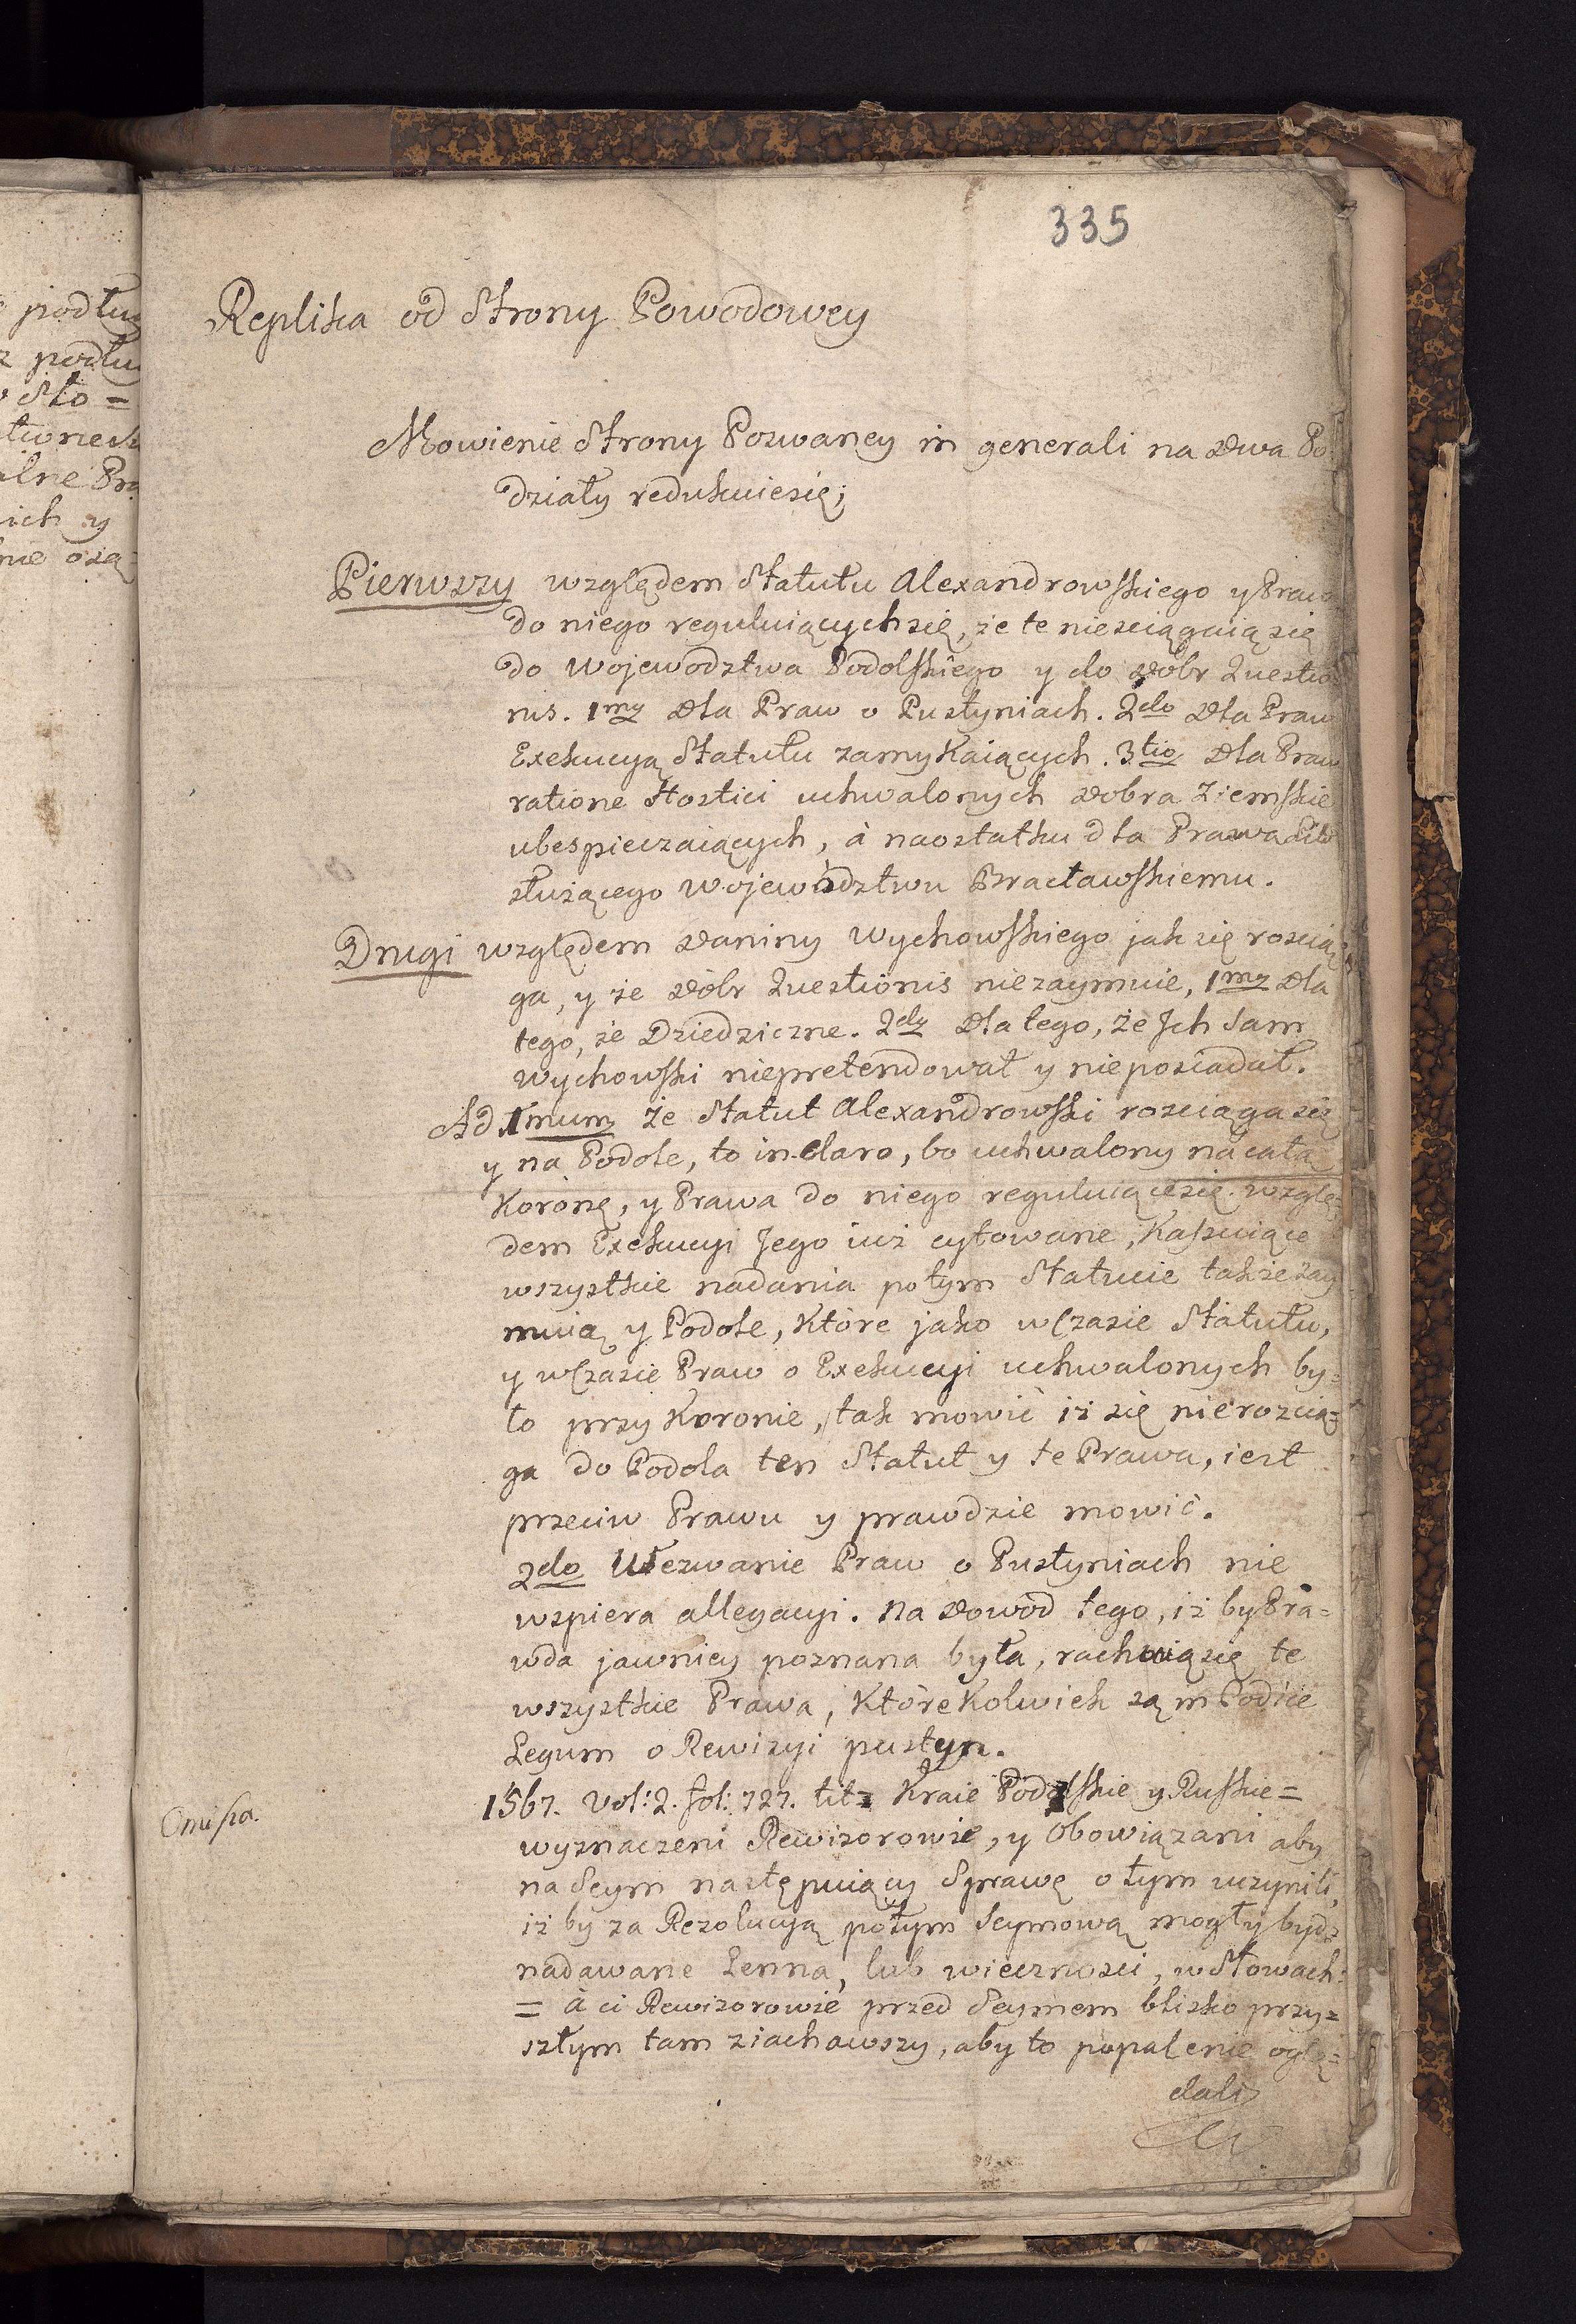 335
Replika od Strony Powodowey
Mowienie Strony Pozwaney in generali na dwa Po
działy redukuiesię;
Pierwszy względem Statutu Alexandrowskiego y Praw
do niego reguluiących się, że te nieściągaią się
do Wojewodztwa Podolskiego y do dóbr Questio
nis. 1mo dla Praw o Pustyniach. 2do dla Praw
Exekucyą Statutu zamykaiących. 3tio dla Praw
ratione Hostici uchwalonych dobra Ziemskie
ubespieczaiących, à naostatku dla Prawa
służącego Wojewòdztwu Bracławskiemu.
Drugi względem daniny Wychowskiego jak się rością
ga, y że dóbr Questionis niezaymuie, 1mo dla
tego, że Dziedziczne. 2do dla tego, że Jch Sam
Wychowski niepretendował y nieposiadał.
Ad 1mum Że Statut Alexandrowski rościąga się
y na Podole, to in claro, bo uchwalony na całą
Koronę, y Prawa do niego reguluiącesię wzglę
dem Exekucyi Jego iuż cytowane, Kassuiące
wszystkie nadania potym Statucie także zay
muią y Podole, Które jako w Czasie Statutu,
y w Czasie Praw o Exekucyi uchwalonych by=
ło przy Koronie, tak mowić iż się nierozcią=
ga do Podola ten Statut y te Prawa, iest
przeciw Prawu y prawdzie mowić.
2do Wezwanie Praw o Pustyniach nie
wspiera allegacyi. Na dowod tego, iż by Pra=
wda jawniey poznana była, rachuią się te
wszystkie Prawa, Które Kolwiek są in Codice
Legum o Rewizyi pustyn.
Omissa.
1567. Vol: 2. fol: 727. tit: Kraie Podolskie y Ruskie =
wyznaczeni Rewizorowie, y Obowiązani aby
na Seym następuiący Sprawę o tym uczynili,
iż by za Rezolucyą potym Seymową mogły bydz
nadawane Lenna, lub wieczności, w Słowach:
= à ci Rewizorowie przed Seymem blisko przy=
szłym tam ziachawszy, aby to popalenie oglą=
dali
podług
z podług
Sło =
ich y